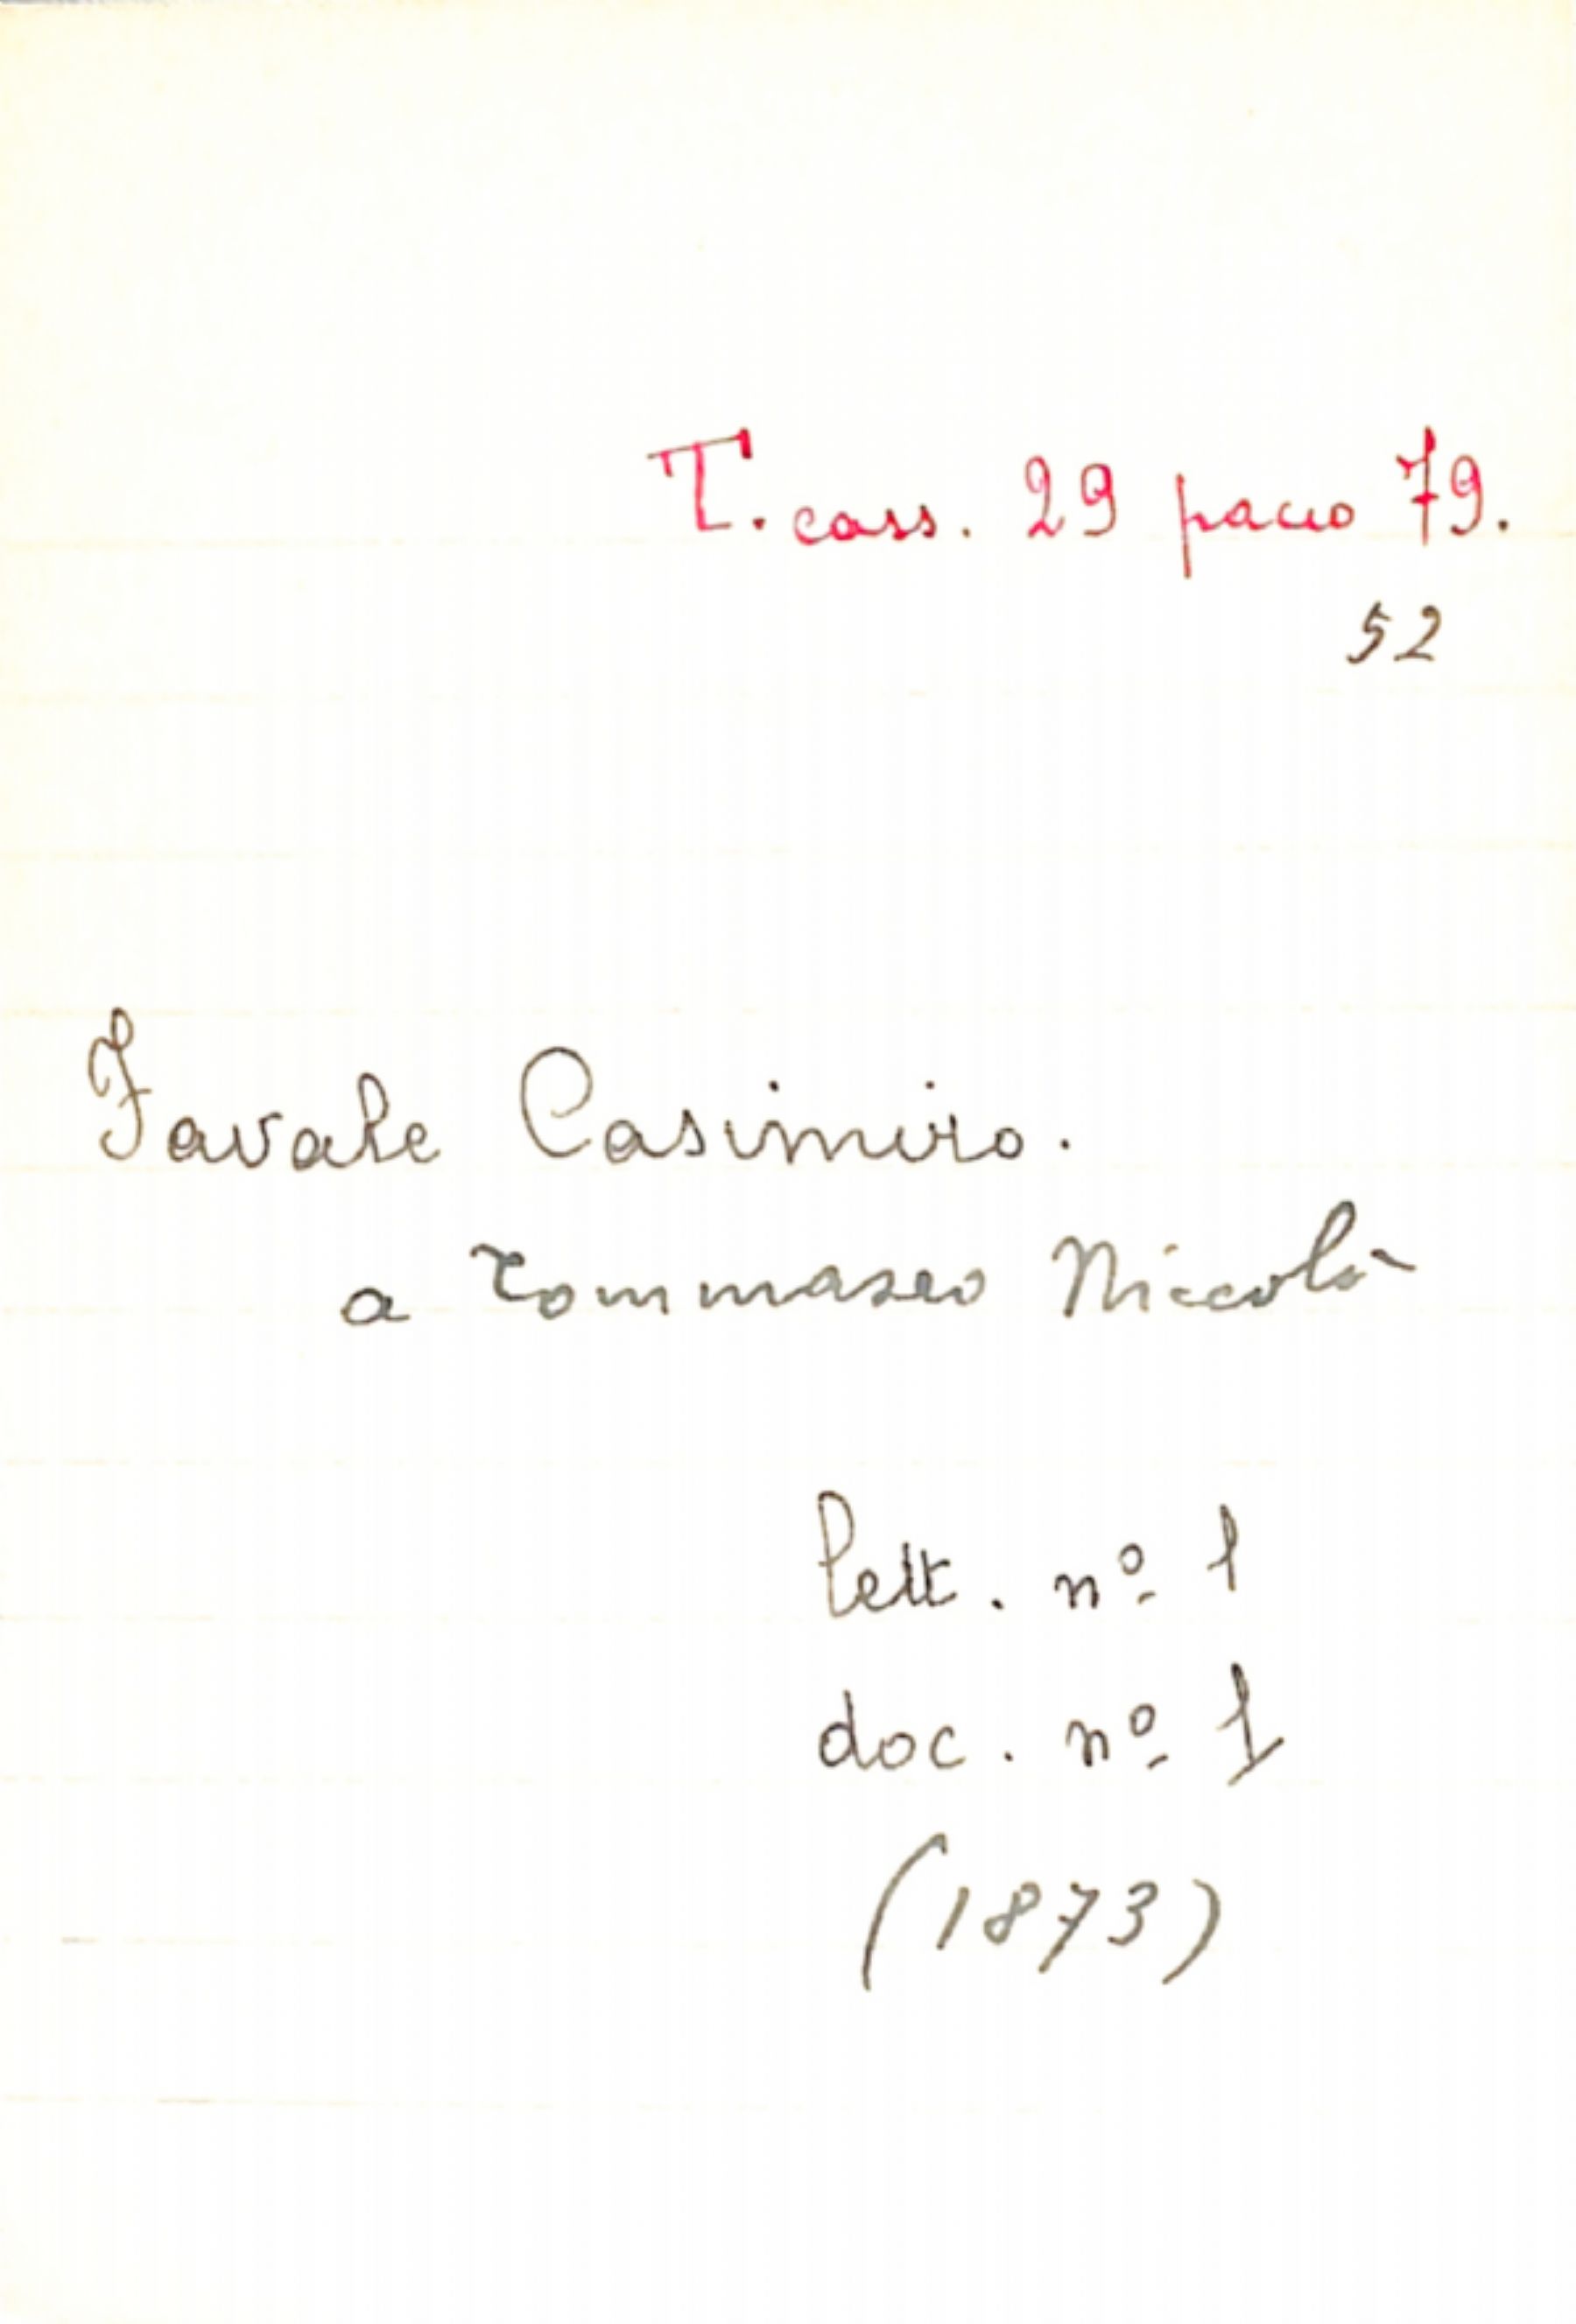 T. cass. 29 pacco 79.
52
Favale Casimiro.
a Tommaseo Niccolò
lett. nº 1
doc. nº 1
(1873)